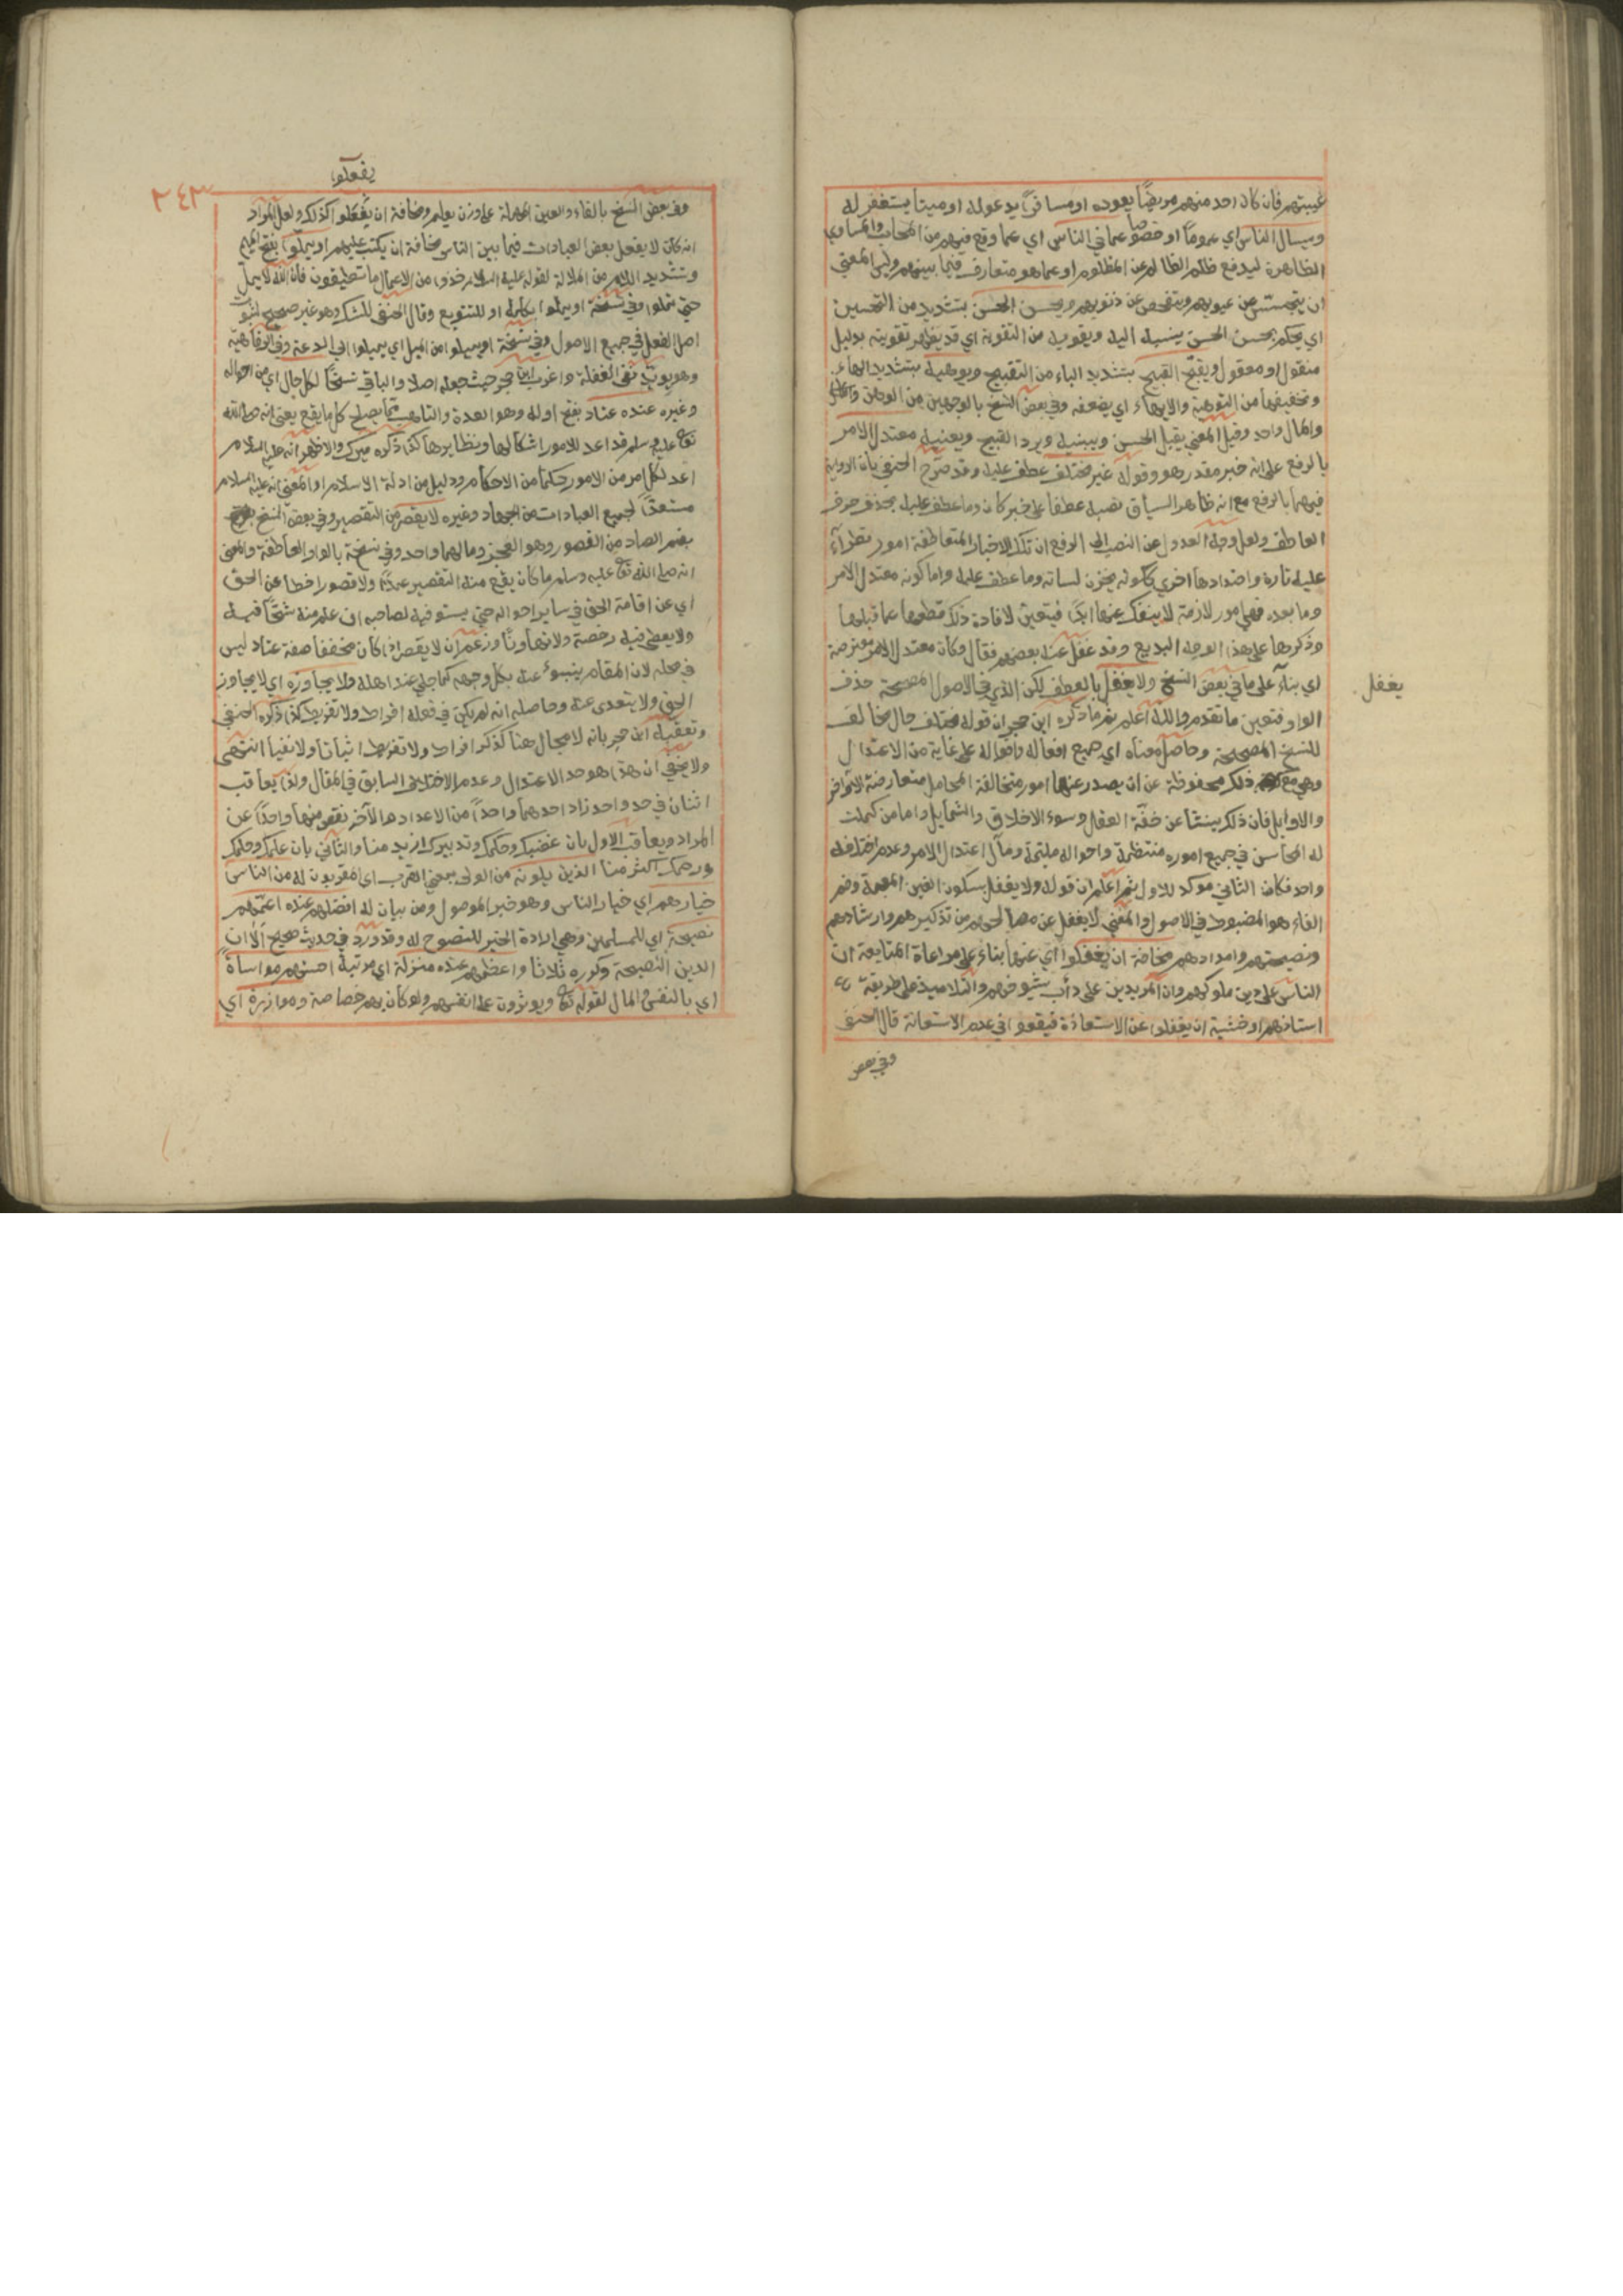 غيبتهم فان كان احد منهم مريضا يعوده او مسافرا يدعو له او ميتا يستغفر له
ويسال الناس اي عموما او خصوصا عما في الناس اي عما وقع فيهم من المحاسن والمساوي
الظاهرة ليدفع ظلم الظالم عن المظلوم او عما هو متعارف فيما بينهم وليس المعنى
ان يتجسس من عيوبهم ويتفحص عن ذنوبهم ويحسن الحسن بتشديد من التحسين
اي يحكم بحسن الحسن ينسبه اليه ويقويه من التقوية اي قد يظهر تقويته بدليل
منقول او معقول ويقبح القبيح بتشديد الباء من التقبيح ويوهيه بتشديد الهاء
وتخفيفها من التوهية والايهاء اي يضعفه وفي بعض النسخ بالوجهين من الوهن
والمال واحد وقيل المعنى يقبل الحسن ويبينه ويرد القبيح ويعنيه معتدل الامر
بالرفع على انه خبر مقدر هو وقوله غير مختلف عطف عليه وقد صرح الحنفي بان الرواية
فيهما بالرفع مع ان ظاهر السياق نصبه عطفا على خبر كان وما عطف عليه بحذف حرف
العاطف ولعل وجه العدول عن النصب الى الرفع ان تلك الاخبار المتعاطفة امور تطرأ
عليه تارة واضدادها اخري ككونه يخزن لسانه وما عطف عليه واما كونه معتدل الامر
وما بعده فهي امور لازمة لا ينفك عنها ابدا فيتعين لافادة ذلك قطعها عما قبلها
وذكرها على هذا الوجه البديع وقد غفل عنه بعضهم فقال وكان معتدل الامر معترضة
اي بناء على ما في بعض النسخ ولا يغفل بالعطف لكن الذي في الاصول المصححة حذف
يغفل
الواو فتعين ما تقدم والله اعلم ثم ما ذكره ابن حجر ان قوله مختلف حال مخالف
للنسخ المصححة وحاصل معناه اي جميع افعاله واقواله على غاية من الاعتدال
وهي مع ذلك محفوظة عن ان يصدر عنها امور متخالفة المحامل متعارضة الاواخر
والاوايل فان ذلك ينشا عن خفة العقل وسوء الاخلاق والشمايل واما من كملت
له المحاسن في جميع اموره منتظمة واحواله ملتيمة ومآل اعتدال الامر وعدم اختلافه
واحد فكان الثاني موكد للاول ثم اعلم ان قوله ولا يغفل بسكون الغين المعجمة وضم
الفاء هو المضبوط في الاصول والمعنى لا يغفل عن مصالحهم من تذكيرهم وارشادهم
ونصيحتهم وامدادهم مخافة ان يغفلوا اي عنها بناء على مراعاة المتابعة ان
الناس على دين ملوكهم وان المريدين على دأب شيوخهم والتلاميذ على طريقة
استاذهم او خشية ان يغفلوا عن الاستعاذة فيقعوا في عدم الاستعانة قال الحنفي
وفي بعض
يفعلوا
٢٤٣
وفي بعض النسخ بالفاء والعين المهملة على وزن يعلم ومخافة ان يفعلوا كذلك ولعل المراد
انه كان لا يفعل بعض العبادات فيما بين الناس مخافة ان يكتب عليهم او يملوا بفتح الميم
وتشديد اللام من الملالة لقوله عليه السلام خذوا من الاعمال ما تطيقون فان الله لا يمل
حتى تملوا وفي نسخة او يملوا بكلمة او للتنويع وقال الحنفي للشك وهو غير صحيح لثبوت
اصل الفعل في جميع الاصول وفي نسخة او يميلوا من الميل اي يميلوا الى الدعة والرفاهية
وهو يويد نفي الغفلة واغرب ابن حجر حيث جعله اصلا والباقي نسخا لكل حال اي من احواله
وغيره عنده عتاد بفتح اوله وهو العدة والتاهب مما يصلح كل ما يقع يعني انه صلى الله
تعا عليه وسلم قد اعد للامور اشكالها ونظايرها كذا ذكره ميرك والاظهر انه عليه السلام
اعد لكل امر من الامور حكما من الاحكام ودليل من ادلة الاسلام او المعنى انه عليه السلام
مستعدا لجميع العبادات من الجهاد وغيره لا يقصر من التقصير وفي بعض النسخ
بضم الصاد من القصور وهو العجز ومالهما واحد وفي نسخة بالواو العاطفة والمعنى
انه صلى الله تعا عليه وسلم ما كان يقع منه التقصير عمدا ولا قصورا خطا عن الحق
اي عن اقامة الحق في ساير احواله حتى يستوفيه لصاحبه ان علم منه شحا فيه
ولا يعطي فيه رخصة ولا تهاونا وزعم ان لا يقصر اذا كان مخففا صفة عتاد ليس
في محله لان المقام ينبوء عنه بكل وجهه كما جلي عند اهله ولا يجاوزه اي لا يجاوز
الحق ولا يتعدى عنه وحاصله انه لم يكن في فعله افراط ولا تفريط كذا ذكره الحنفي
وتعقبه ابن حجر بانه لا مجال هنا لذكر افراط ولا تفريط اثباتا ولا نفيا انتهى
ولا يخفى ان هذا هو حد الاعتدال وعدم الاختلاف السابق في المقال ولذا يعاقب
اثنان في حد واحد زاد احدهما واحدا من الاعداد والآخر نقص منها واحدا عن
المراد ويعاقب الاول بان غضبك وحكمك وتدبيرك ازيد منا والثاني بان علمك وحلمك
ورحمك اكثر منا الذين يلونه من الولي بمعنى القرب اي المقربون له من الناس
خيارهم اي خيار الناس وهو خبر الموصول ومن بيان له افضلهم عنده اعمهم
نصيحة اي للمسلمين وهي ارادة الخير للنصوح له وقد ورد في حديث صحيح الا ان
الدين النصيحة وكرره ثلاثا واعظمهم عنده منزلة اي مرتبة احسنهم مواساة
اي بالنفس والمال لقوله تعا ويوثرون على انفسهم ولو كان بهم خصاصة وموازرة اي